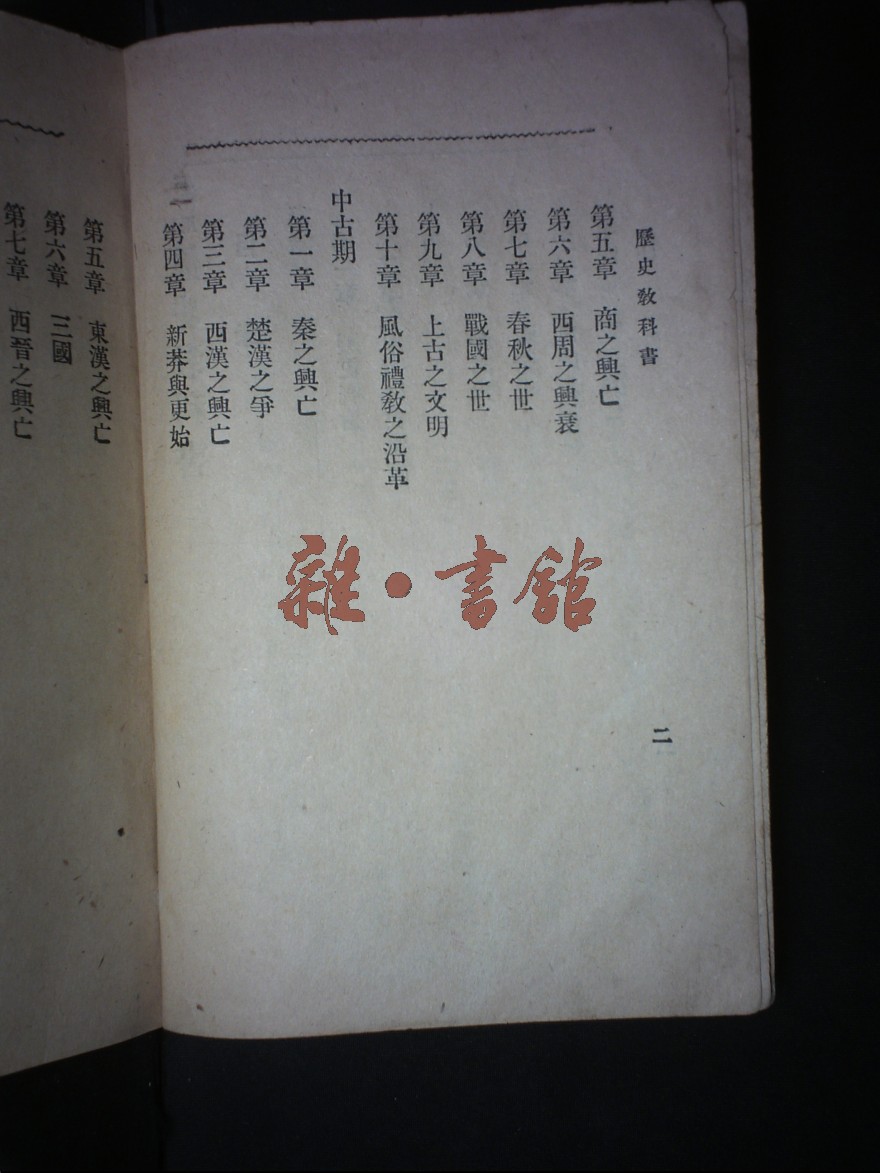 歷史敎科書
二
第五章　商之興亡
第六章　西周之興衰
第七章　春秋之世
第八章　戰國之世
第九章　上古之文明
第十章　風俗禮敎之沿革
中古期
第一章　秦之興亡
第二章　楚漢之爭
第三章　西漢之興亡
第四章　新莽與更始
第五章　東漢之興亡
第六章　三國
第七章　西晉之興亡
雜·書館